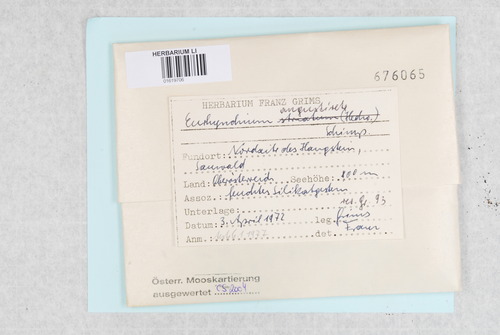 HERBARIUM LI
676065
HERBARIUM FRANZ GRIMS
angustirete
Eurhynchium striatum (Hedw.)
Schimp
Fundort: Nordseite des Haugstein,
Sauwald
Land: Oberösterreich Seehöhe: 800 m
Assoz.: feuchtes Silikatgestein
Unterlage: rev. Gr. 93
Datum: 3. April 1972 leg. Grims
Anm. det. Franz
Österr. Mooskartierung
ausgewertet